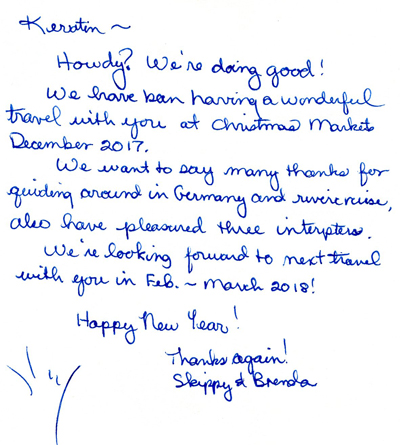 Kerstin ~
Howdy? We're doing good!
We have been having a wonderful
travel with you at Christmas Markets
December 2017.
We want to say many thanks for
guiding around in Germany and rivercruise,
also have pleasured three interpters.
We're looking forward to next travel
with you in Feb. ~ March 2018!
Happy New Year!
Thanks again!
Skippy & Brenda